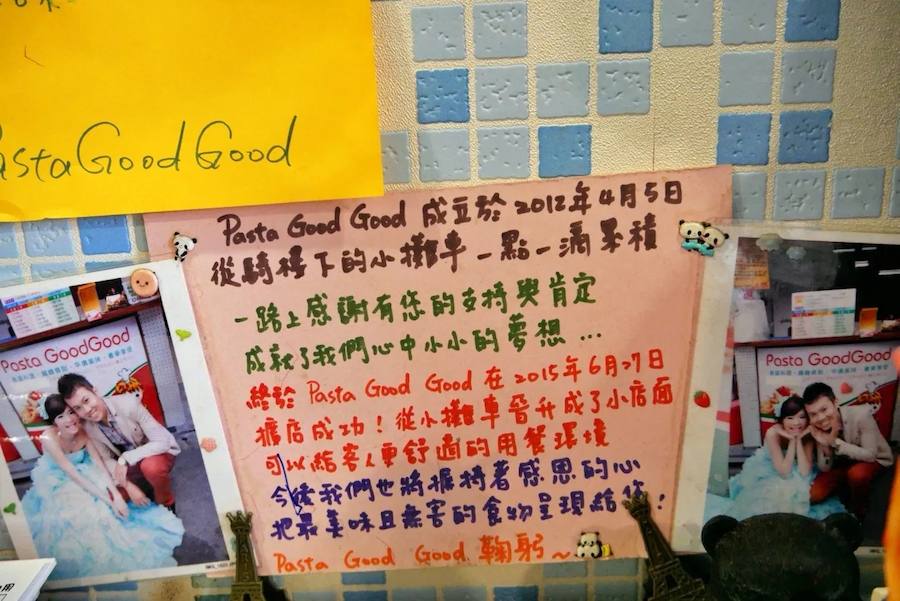 Pasta Good Good
Pasta Good Good 成立於 2012年4月5日
從騎樓下的小攤車 一點一滴累積
一路上感謝有您的支持與肯定
成就了我們心中小小的夢想 ...
終於 Pasta Good Good 在 2015年6月27日
擴店成功！從小攤車晉升成了小店面
可以給客人更舒適的用餐環境
今後我們也將握持著感恩的心
把最美味且無害的食物呈現給您！
Pasta Good Good 鞠躬~
Pasta GoodGood
Pasta GoodGood